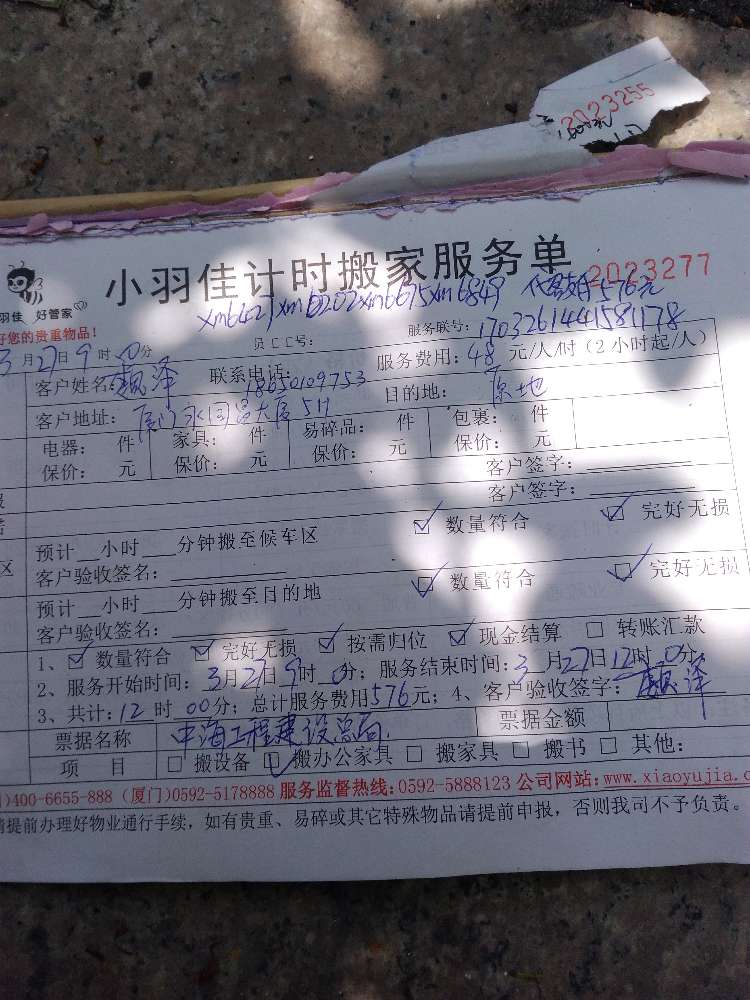 2023255
小羽佳计时搬家服务单 2023277
羽佳 好管家
好您的贵重物品!
xm6421xm6202xm6675xm6849 576元
服务联号: 1703261441581178
3月27日9时00分
客户姓名: 泽 联系电话: 18650109753 服务费用: 48元/人/时(2小时起/人)
客户地址: 厦门 大厦511 目的地: 原地
电器: 件 家具: 件 易碎品: 件 包裹: 件
保价: 元 保价: 元 保价: 元 保价: 元
客户签字:
客户签字:
预计 小时 分钟搬至候车区 ☑ 数量符合 ☑ 完好无损
客户验收签名:
预计 小时 分钟搬至目的地 ☑ 数量符合 ☑ 完好无损
客户验收签名:
1、☑ 数量符合 ☑ 完好无损 ☑ 按需归位 ☑ 现金结算 □ 转账汇款
2、服务开始时间: 3月27日9时0分; 服务结束时间: 3月27日12时0分;
3、共计: 12时00分; 总计服务费用576元; 4、客户验收签字: 泽
票据名称 中海工程建设总局 票据金额
项 目 □ 搬设备 ☑ 搬办公家具 □ 搬家具 □ 搬书 □ 其他:
)400-6655-888 (厦门)0592-5178888 服务监督热线:0592-5888123 公司网站:www.xiaoyujia.c
请提前办理好物业通行手续, 如有贵重、易碎或其它特殊物品请提前申报, 否则我司不予负责。